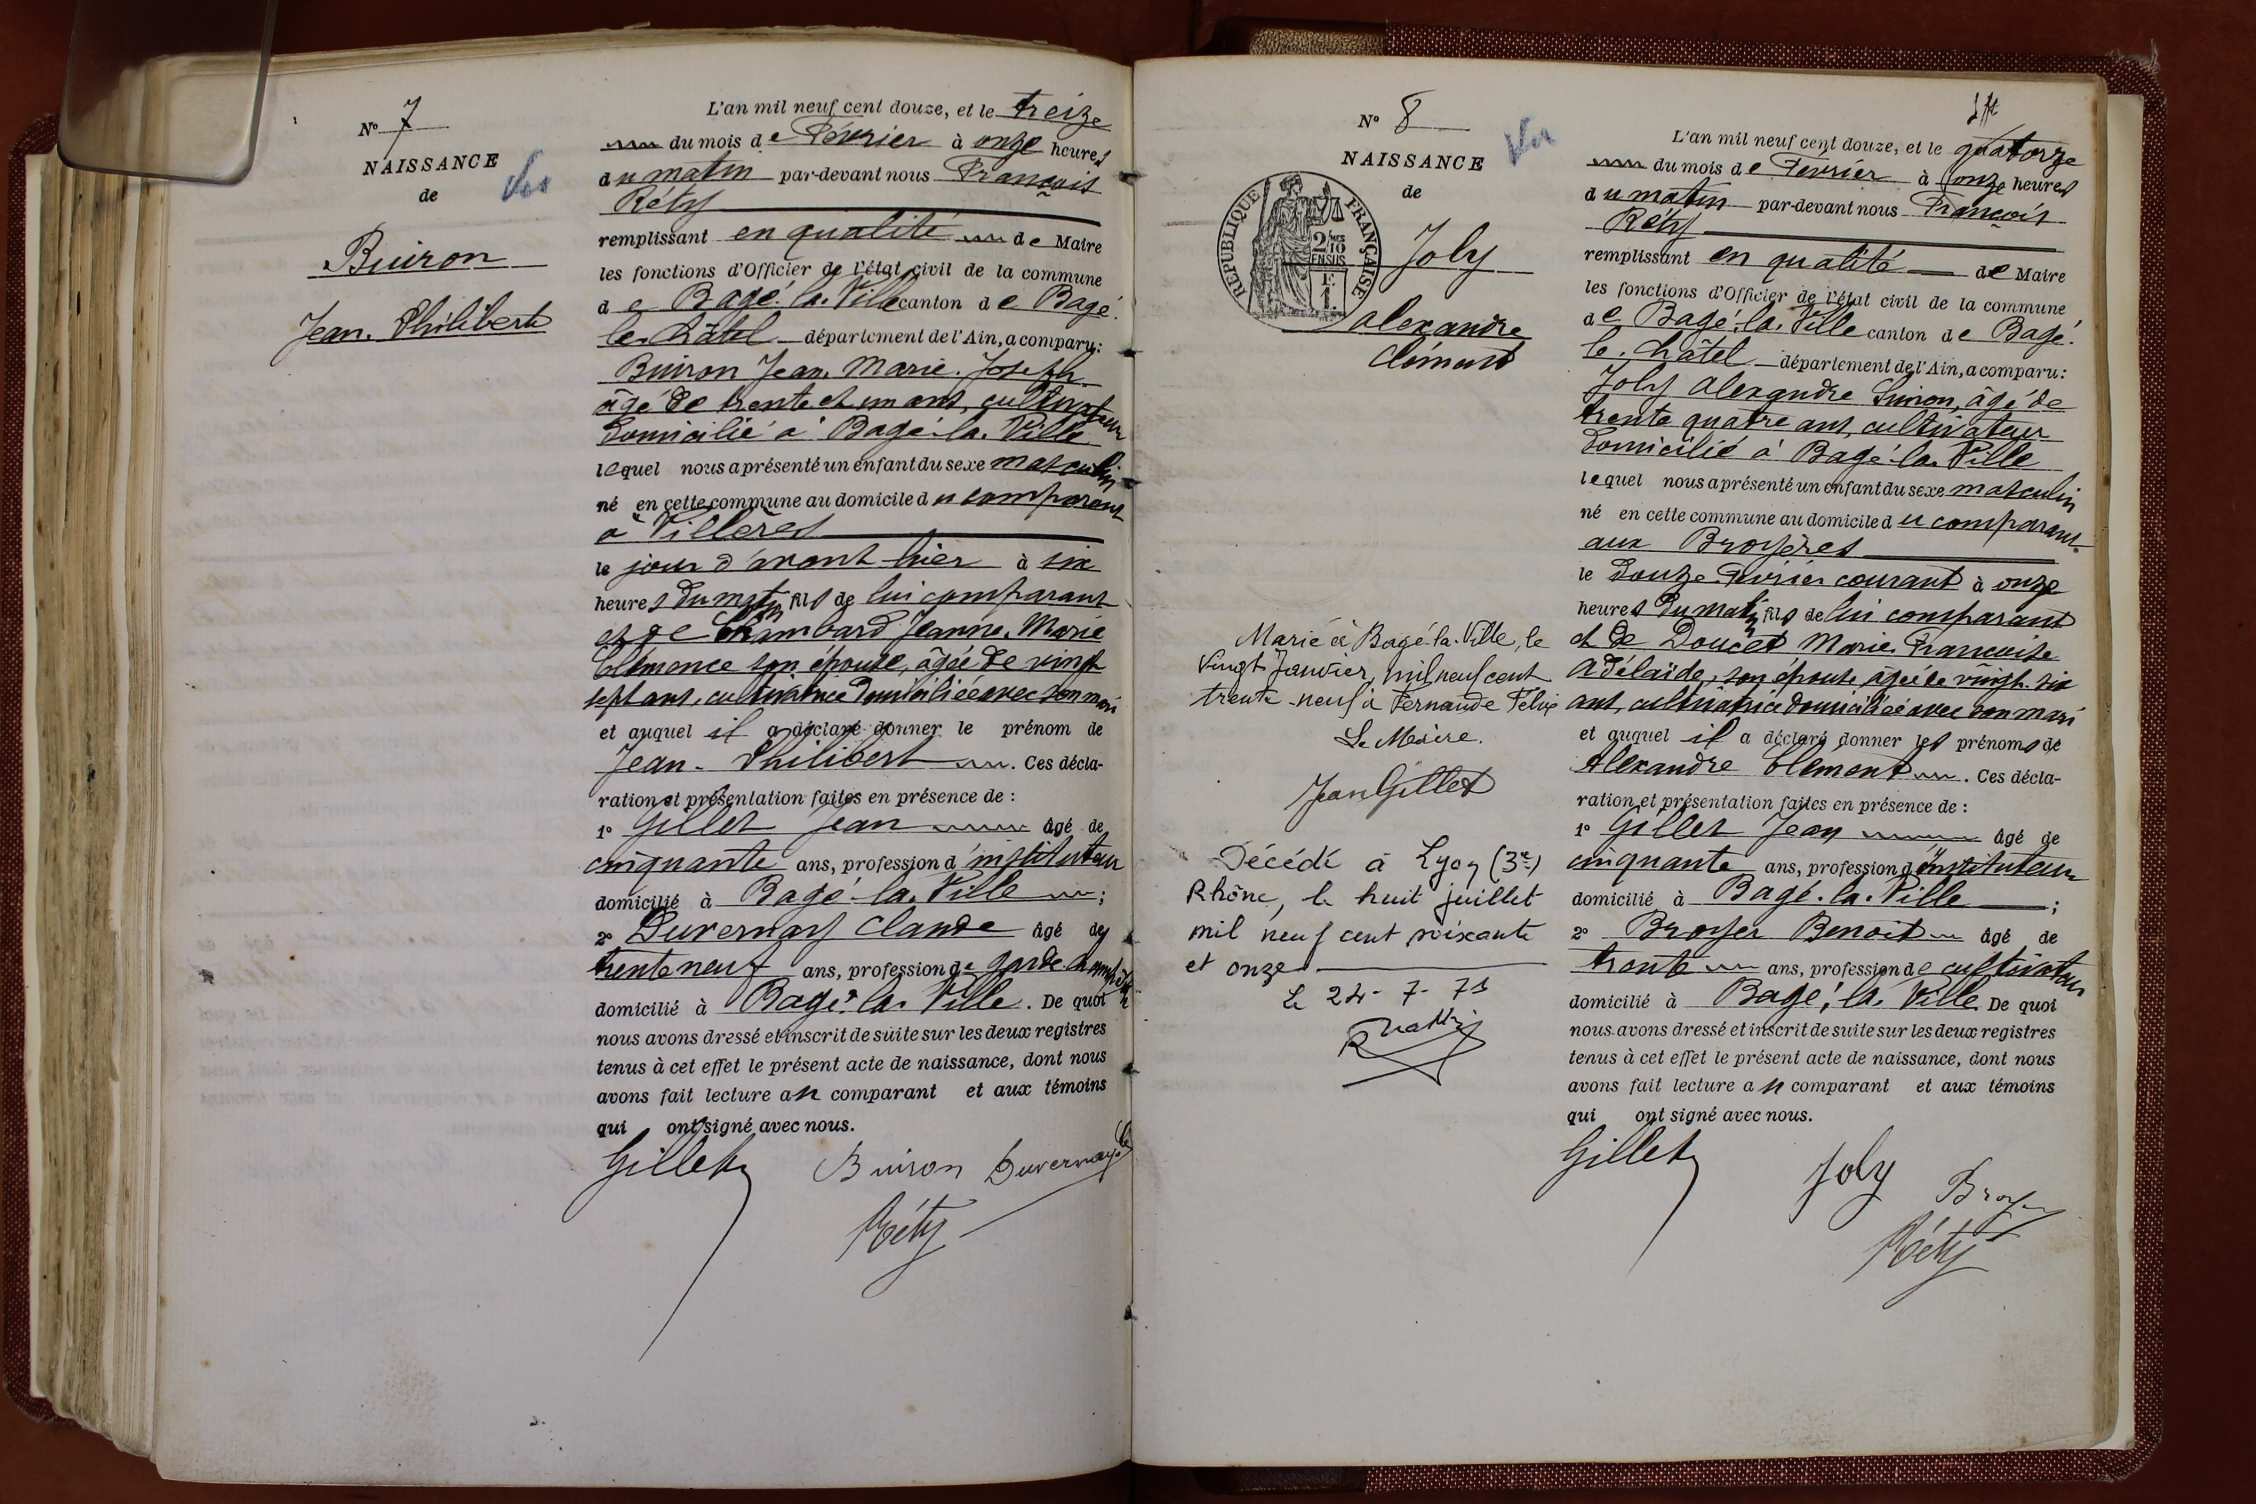 N° 7
NAISSANCE
de
Vu
Buiron
Jean-Philibert
L'an mil neuf cent douze, et le treize
du mois de Février à onze heures
du matin par-devant nous François
Réty
remplissant en qualité de Maire
les fonctions d'Officier de l'état civil de la commune
de Bagé-la-Ville canton de Bagé-
le-Châtel département de l'Ain, a comparu:
Buiron Jean-Marie-Joseph
âgé de trente et un ans, cultivateur
domicilié à Bagé-la-Ville
lequel nous a présenté un enfant du sexe masculin
né en cette commune au domicile du comparant
à Villères
le jour d'avant-hier à six
heures du matin fils de lui comparant
et de Chambard Jeanne-Marie
Clémence son épouse, âgée de vingt
sept ans, cultivatrice domiciliée avec son mari
et auquel il a déclaré donner le prénom de
Jean-Philibert. Ces décla-
ration et présentation faites en présence de :
1° Gillet Jean âgé de
cinquante ans, profession d'instituteur
domicilié à Bagé-la-Ville ;
2° Duvernay Claude âgé de
trente neuf ans, profession de garde champêtre
domicilié à Bagé-la-Ville. De quoi
nous avons dressé et inscrit de suite sur les deux registres
tenus à cet effet le présent acte de naissance, dont nous
avons fait lecture au comparant et aux témoins
qui ont signé avec nous.
Gillet Buiron Duvernay
Réty
N° 8
NAISSANCE
de
Vu
RÉPUBLIQUE FRANÇAISE
2/10
EN SUS
F
1
Joly
Alexandre
Clément
Marié à Bagé-la-Ville, le
vingt Janvier, mil neuf cent
trente-neuf à Fernande Felix
Le Maire.
Jean Gillet
Décédé à Lyon (3e)
Rhône, le huit juillet
mil neuf cent soixante
et onze
Le 24-7-71
L'an mil neuf cent douze, et le quatorze
du mois de Février à onze heures
du matin par-devant nous François
Réty
remplissant en qualité de Maire
les fonctions d'Officier de l'état civil de la commune
de Bagé-la-Ville canton de Bagé-
le-Châtel département de l'Ain, a comparu:
Joly Alexandre Simon, âgé de
trente quatre ans, cultivateur
domicilié à Bagé-la-Ville
lequel nous a présenté un enfant du sexe masculin
né en cette commune au domicile du comparant
aux Broyères
le douze Février courant à onze
heures du matin fils de lui comparant
et de Doucet Marie Françoise
Adélaïde, son épouse, âgée de vingt-six
ans, cultivatrice domiciliée avec son mari
et auquel il a déclaré donner les prénoms de
Alexandre Clément. Ces décla-
ration et présentation faites en présence de :
1° Gillet Jean âgé de
cinquante ans, profession d'instituteur
domicilié à Bagé-la-Ville ;
2° Broyer Benoit âgé de
trente ans, profession de cultivateur
domicilié à Bagé-la-Ville De quoi
nous avons dressé et inscrit de suite sur les deux registres
tenus à cet effet le présent acte de naissance, dont nous
avons fait lecture au comparant et aux témoins
qui ont signé avec nous.
Gillet Joly Broyer
Réty